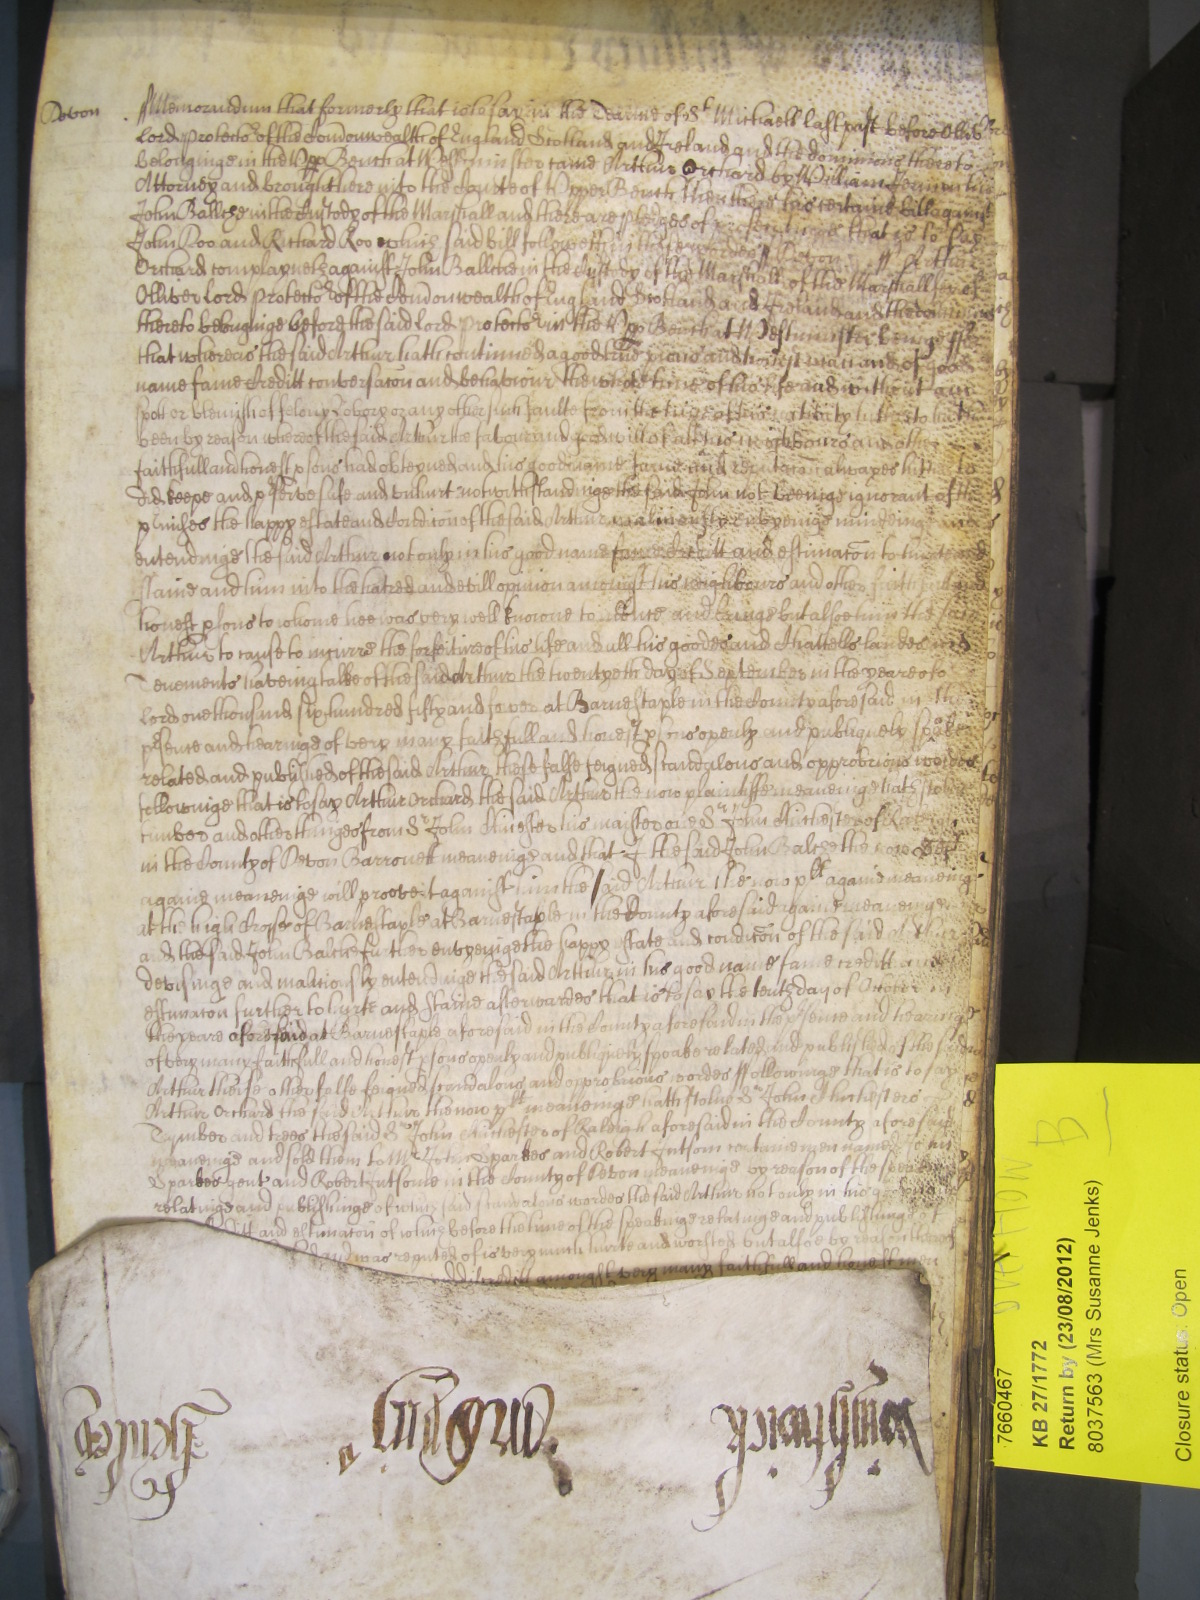 Devon . Memorandum that formerly that is to say in the Tearme of St Michaell last past before Oliver
Lord Protector of the Comonwealth of England Scotland and Ireland and the dominions thereto
belonginge in the Upp Bench at Westminster came Arthur Orchard by William
Attorney and brought here into the Courte of Upper Bench then there his certaine bill against
John Ballche in the Custody of the Marshall and there are pledges of prosecutinge that is to say
John Doo and Richard Roo which said bill followeth in these wordes ss Devon ss Arthur
Orchard complayneth against John Ballche in the Custody of the Marshall of the Marshallsey of
Olliver Lord Protector of the Comonwealth of England Scotland and Ireland and the dominions
thereto belonginge before the said Lord Protector in the Upp Bench at Westminster beinge ffor
that whereas the said Arthur hath continued a good true pious and honest man and of good
name fame Creditt conversacon and behaviour the whole time of his life and without any
spott or blemish of felony Robery or any other such faulte from the time of his nativity hitherto hath
been by reason whereof the said Arthur the favour and goodwill of all his neighbours and other
faithfull and honest psons had obteyned and his good name fame and reputacon alwayes hitherto
did keepe and pserve safe and unhurt notwithstandinge the said John not beeinge ignorant of the
pmisses the happy estate and Condicon of the said Arthur maliciously envyenge mindeinge and
entendinge the said Arthur not only in his good name fame Creditt and estimacon to hurte and
staine and him into the hatred and evill opinion amongst his neighbours and other faithfull and
honest psons to whome hee was very well knowne to reduce and bringe but alsoe him the said
Arthur to cause to incurre the forfeiture of his life and all his goodes and Chattells landes and
Tenements haveing talke of the said Arthur the twentyeth day of September in the yeare of o
Lord one thousand six hundred fifty and fower at Barnestaple in the County aforesaid in the
psence and hearinge of very many faithfull and honest psons openly and publiquely spoke
related and published of the said Arthur these false feigned scandalous and opprobrious wordes
followinge that is to say Arthur Orchard the said Arthur the now plaintiffe meaneinge hath stolne
timber and other thinges from Sr John Chichester his maister one Sr John Chichester of Raleigh
in the County of Devon Barronett meaneinge and that I the said John Balche the now deft
againe meaneinge will proove it against him the said Arthur the now plt againe meaneinge
at the high Crosse of Barnestaple at Barnestaple in the County aforesaid againe meaneinge
and the said John Balche further envyeinge the happy state and condicon of the said Arthur
devisinge and maliciously entendinge the said Arthur in his good name fame creditt and
estimacon further to hurte and staine afterwardes that is to say the tenth day of October in
the yeare aforesaid at Barnestaple aforesaid in the County aforesaid in the psence and hearinge
of very many faithfull and honest psons openly and publiquely spoke related and published of the said
Arthur these other false feigned scandalous and opprobrious wordes followinge that is to say
Arthur Orchard the said Arthur the now plt meaneinge hath stolne Sr John Chichesters
Tymber and trees the said Sr John Chichester of Raleigh aforesaid in the County aforesaid
meaneinge and sold them to Mr John Sparkes and Robert Jutsom certaine men named John
Sparkes gent and Robert Jutsome in the County of Devon meaneinge by reason of the speakinge
relatinge and publishinge of which said scandalous wordes the said Arthur not only in his good name
Creditt and estimacon of which before the time of the speakinge relatinge and publishinge of
and was reputed of is very much hurte and worsted but alsoe by reason thereof
discreditt amongst very many faithfull and honest men
7660467
KB 27/1772
Return by (23/08/2012)
8037563 (Mrs Susanne Jenks)
Closure status: Open